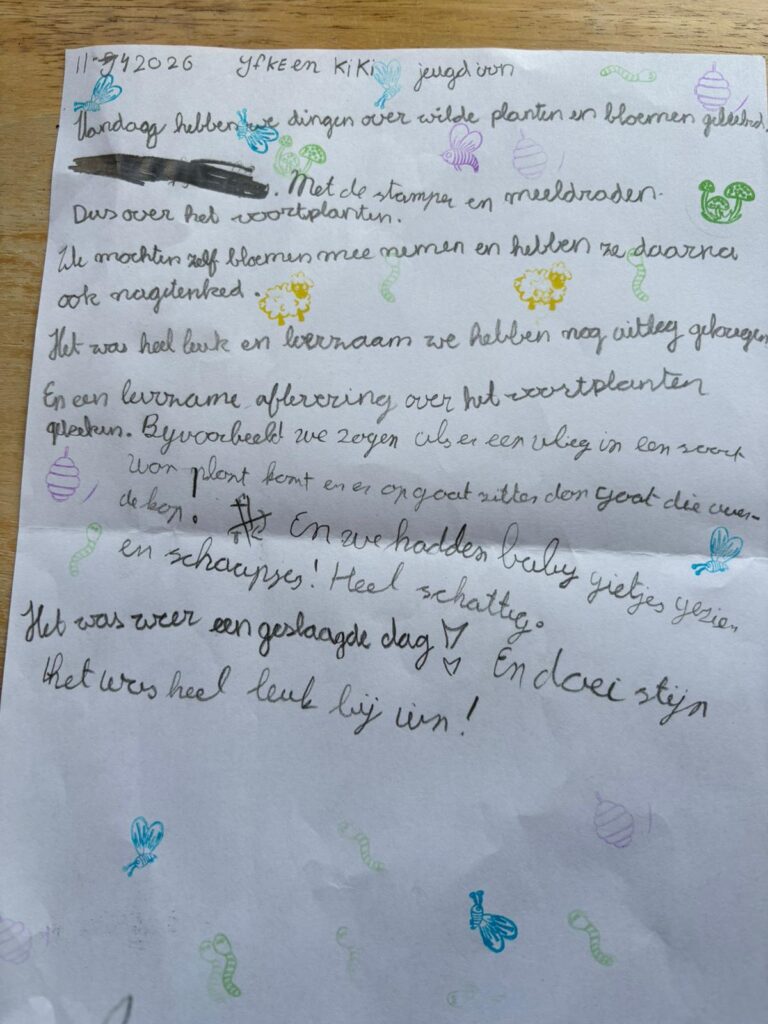 11-04 2026 Yfke en Kiki jeugd ivn
Vandaag hebben we dingen over wilde planten en bloemen geleerd.
. Met de stamper en meeldraden.
Dus over het voortplanten.
We mochten zelf bloemen mee nemen en hebben ze daarna
ook nagetenked.
Het was heel leuk en leerzaam we hebben nog uitleg gekregen
En een leerzame aflevering over het voortplanten
gekeken. Byvoorbeeld we zagen als er een vlieg in een soort
van plant komt en er op gaat zitten dan gaat die over-
de kop. En we hadden baby gietjes gezien
en schaapjes! Heel schattig.
Het was weer een geslaagde dag! En doei stijn
het was heel leuk bij ivn!